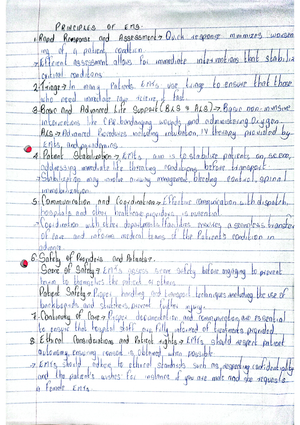 PRINCIPLES OF EMS.
1. Rapid Response and Assessment → Quick response minimizes worsen
ing of a patient condition
→ Efficient assessment allows for immediate interventions that stabilize
critical conditions
2. Triage → In many patients, EMTs use triage to ensure that those
who need immediate care receive it fast
3. Basic and Advanced Life Support (BLS & ALS) → Basic non-invasive
interventions like CPR, bandaging wounds and administering Oxygen
ALS → Advanced Procedures including intubation, IV therapy provided by
EMTs and paramedics
4. Patient Stabilization → EMTs aim is to stabilize patients on scene,
addressing immediate life threatening conditions before transport
→ Stabilization may involve airway management, bleeding control, spinal
immobilization
5. Communication and Coordination → Effective communication with dispatch,
hospitals and other healthcare providers is essential
→ Coordination with other departments/facilities ensures a seamless transfer
of care and informs medical teams of the Patient's condition in
advance
6. Safety of Providers and Patients.
Scene of Safety → EMTs assess scene safety before engaging to prevent
harm to themselves the patient or others
Patient Safety → Proper handling and transport techniques including the use of
backboards and stretchers, prevent further injury
7. Continuity of Care → Proper documentation and communication are essential
to ensure that hospital staff are fully informed of treatments provided
8. Ethical Considerations and Patient rights → EMTs should respect patient
autonomy, ensuring consent is obtained when possible
→ EMTs should adhere to ethical standards such as respecting confidentiality
and the patient's wishes for instance if you are male and she requests
a female EMTs